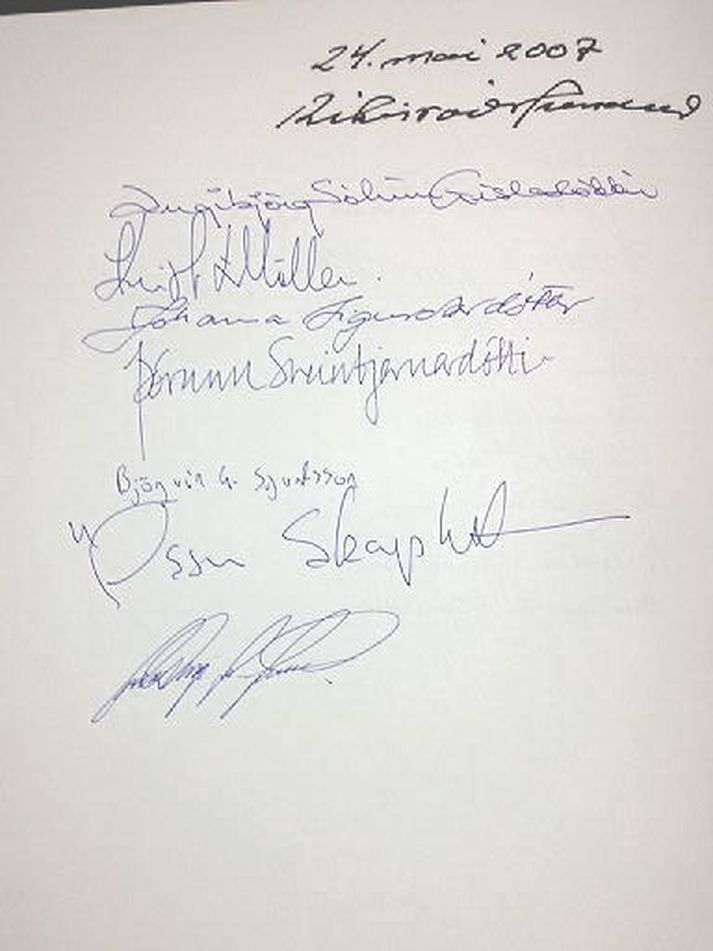 24. maí 2007
Ríkisráðsfundur
Ingibjörg Sólrún Gísladóttir
Kristján L Möller
Jóhanna Sigurðardóttir
Þórunn Sveinbjarnardóttir
Björgvin G. Sigurðsson
Össur Skarphéð